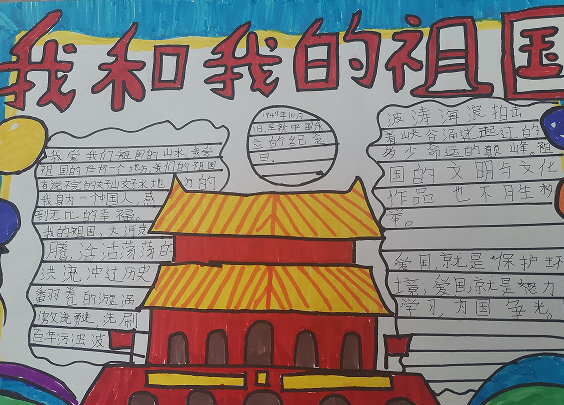 我和我的祖国
1949年10月
1日,是新中国成
立的纪念
日。
我爱我们祖国的山水,我爱
祖国的每一个地方,我们的祖国
有
我身为一个中国人,感
到无比的幸福。
我的祖国,大河奔
腾,浩浩荡荡的
洪流,冲过历史
翻卷的漩涡
激流 ,洗刷
百年污浊,波
波涛海浪拍击
着峡谷涌过起过的
多少命运的颠峰。祖
国的文明与文化
作品也不
爱国,就是“保护环
境,爱国,就是努力
学习,为国争光。